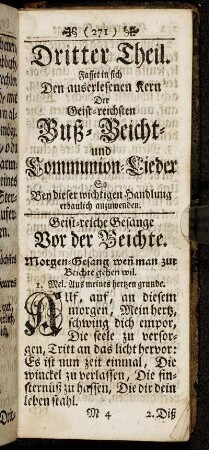 ( 271 )
Dritter Theil.
Fasset in sich
Den auserlesenen Kern
Der
Geist-reichsten
Buß- Beicht-
und
Communion-Lieder
So
Bey dieser wichtigen Handlung
erbaulich anzuwenden.
Geist-reiche Gesänge
Vor der Beichte.
Morgen-Gesang weñ man zur
Beichte gehen wil.
1. Mel. Aus meines hertzen grunde.
Auf, auf, an diesem
morgen, Mein hertz,
schwing dich empor,
Die seele zu versor-
gen, Tritt an das licht hervor:
Es ist nun zeit einmal, Die
winckel zu verlassen, Die fin-
sternüß zu hassen, Die dir dein
leben stahl.
M 4 2. Diß